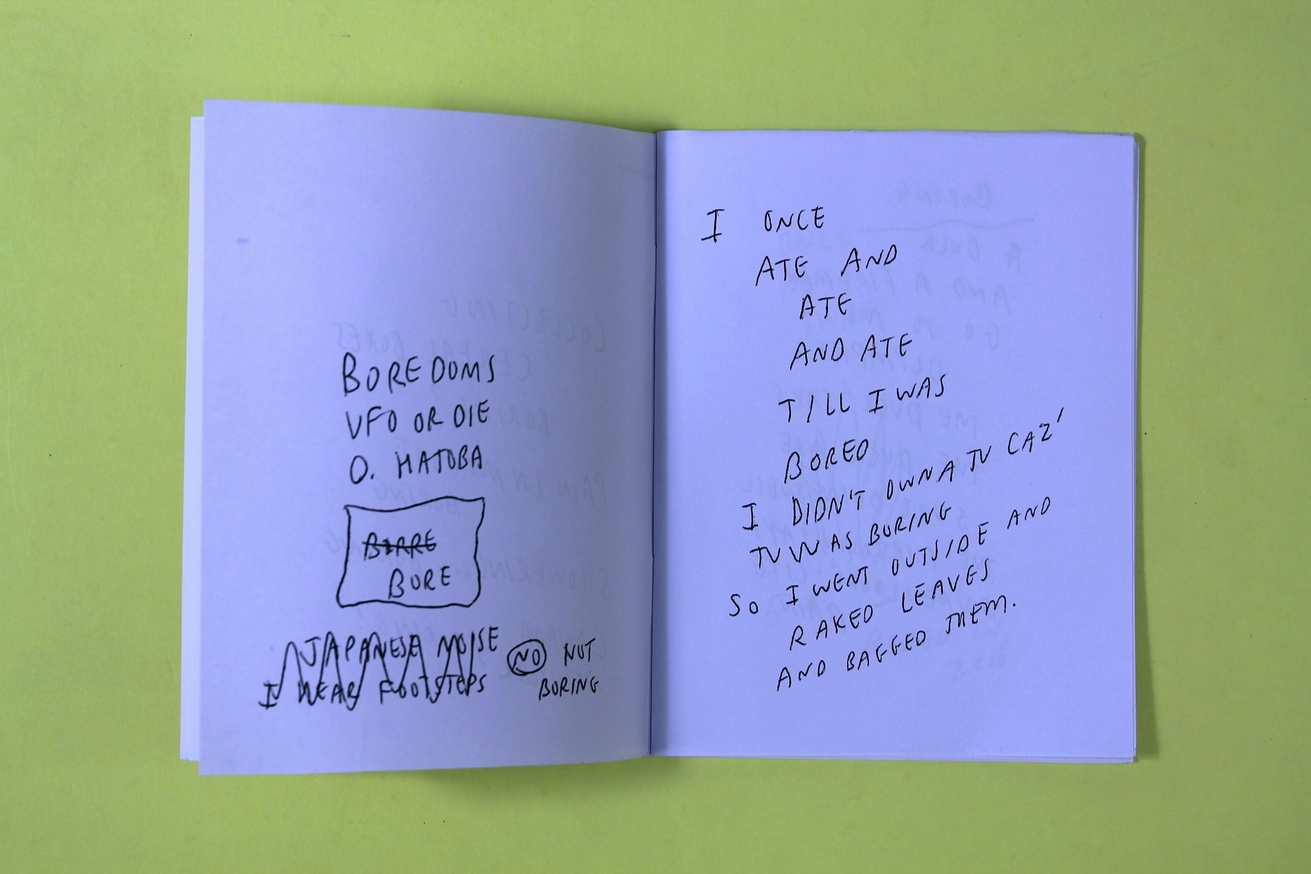 BOREDOMS
UFO OR DIE
O. HATOBA
BORE
JAPANESE NOISE
I HEAR FOOTSTEPS
NO NOT
BORING
I ONCE
ATE AND
ATE
AND ATE
TILL I WAS
BORED
I DIDN'T OWN A TV CAZ'
TV WAS BORING
SO I WENT OUTSIDE AND
RAKED LEAVES
AND BAGGED THEM.